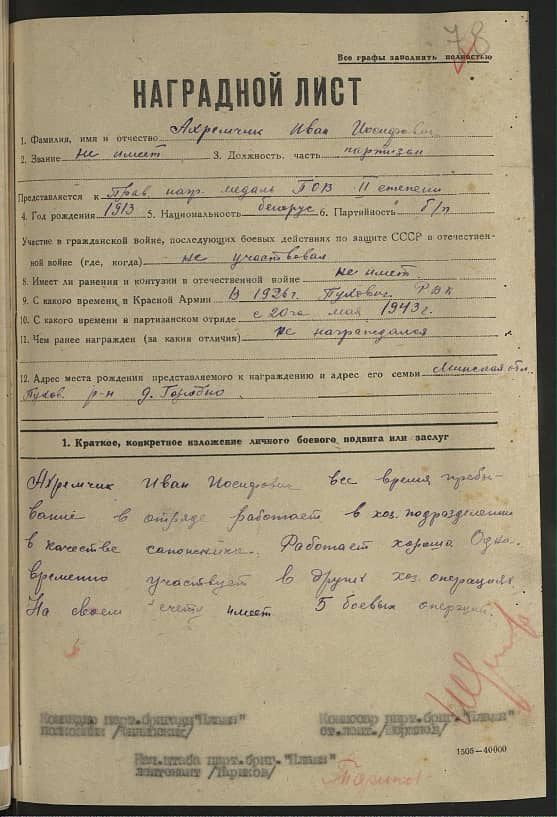 78
Все графы заполнять полностью
НАГРАДНОЙ ЛИСТ
1. Фамилия, имя и отчество Ахремчик Иван Иосифович
2. Звание не имеет 3. Должность, часть партизан
Представляется к Прав. нагр. медаль ПОВ II степени
4. Год рождения 1913 5. Национальность белорус 6. Партийность б/п
Участие в гражданской войне, последующих боевых действиях по защите СССР в отечествен-
ной войне (где, когда) не участвовал
8. Имеет ли ранения и контузии в отечественной войне не имеет
9. С какого времени в Красной Армии В 1926г. Пухович. РВК
10. С какого времени в партизанском отряде с 20го мая 1943 г.
11. Чем ранее награжден (за какия отличия) не награждался
12. Адрес места рождения представляемого к награждению и адрес его семьи Минская обл.
Пухов. р-н д.
1. Краткое, конкретное изложение личного боевого подвига или заслуг
Ахремчик Иван Иосифович все время пребы-
вание в отряде работает в хоз. подразделении
в качестве сапожника. Работает хороша Одно-
временно участвует в других хоз. операциях.
На своем счету имеет 5 боевых операций.
Командир парт.бригады "Пламя"
полковник
Комиссар парт.бриг. "Пламя"
ст.лейт.
Нач.штаба парт.бриг. "Пламя"
лейтенант /Тариков/
1505—40000